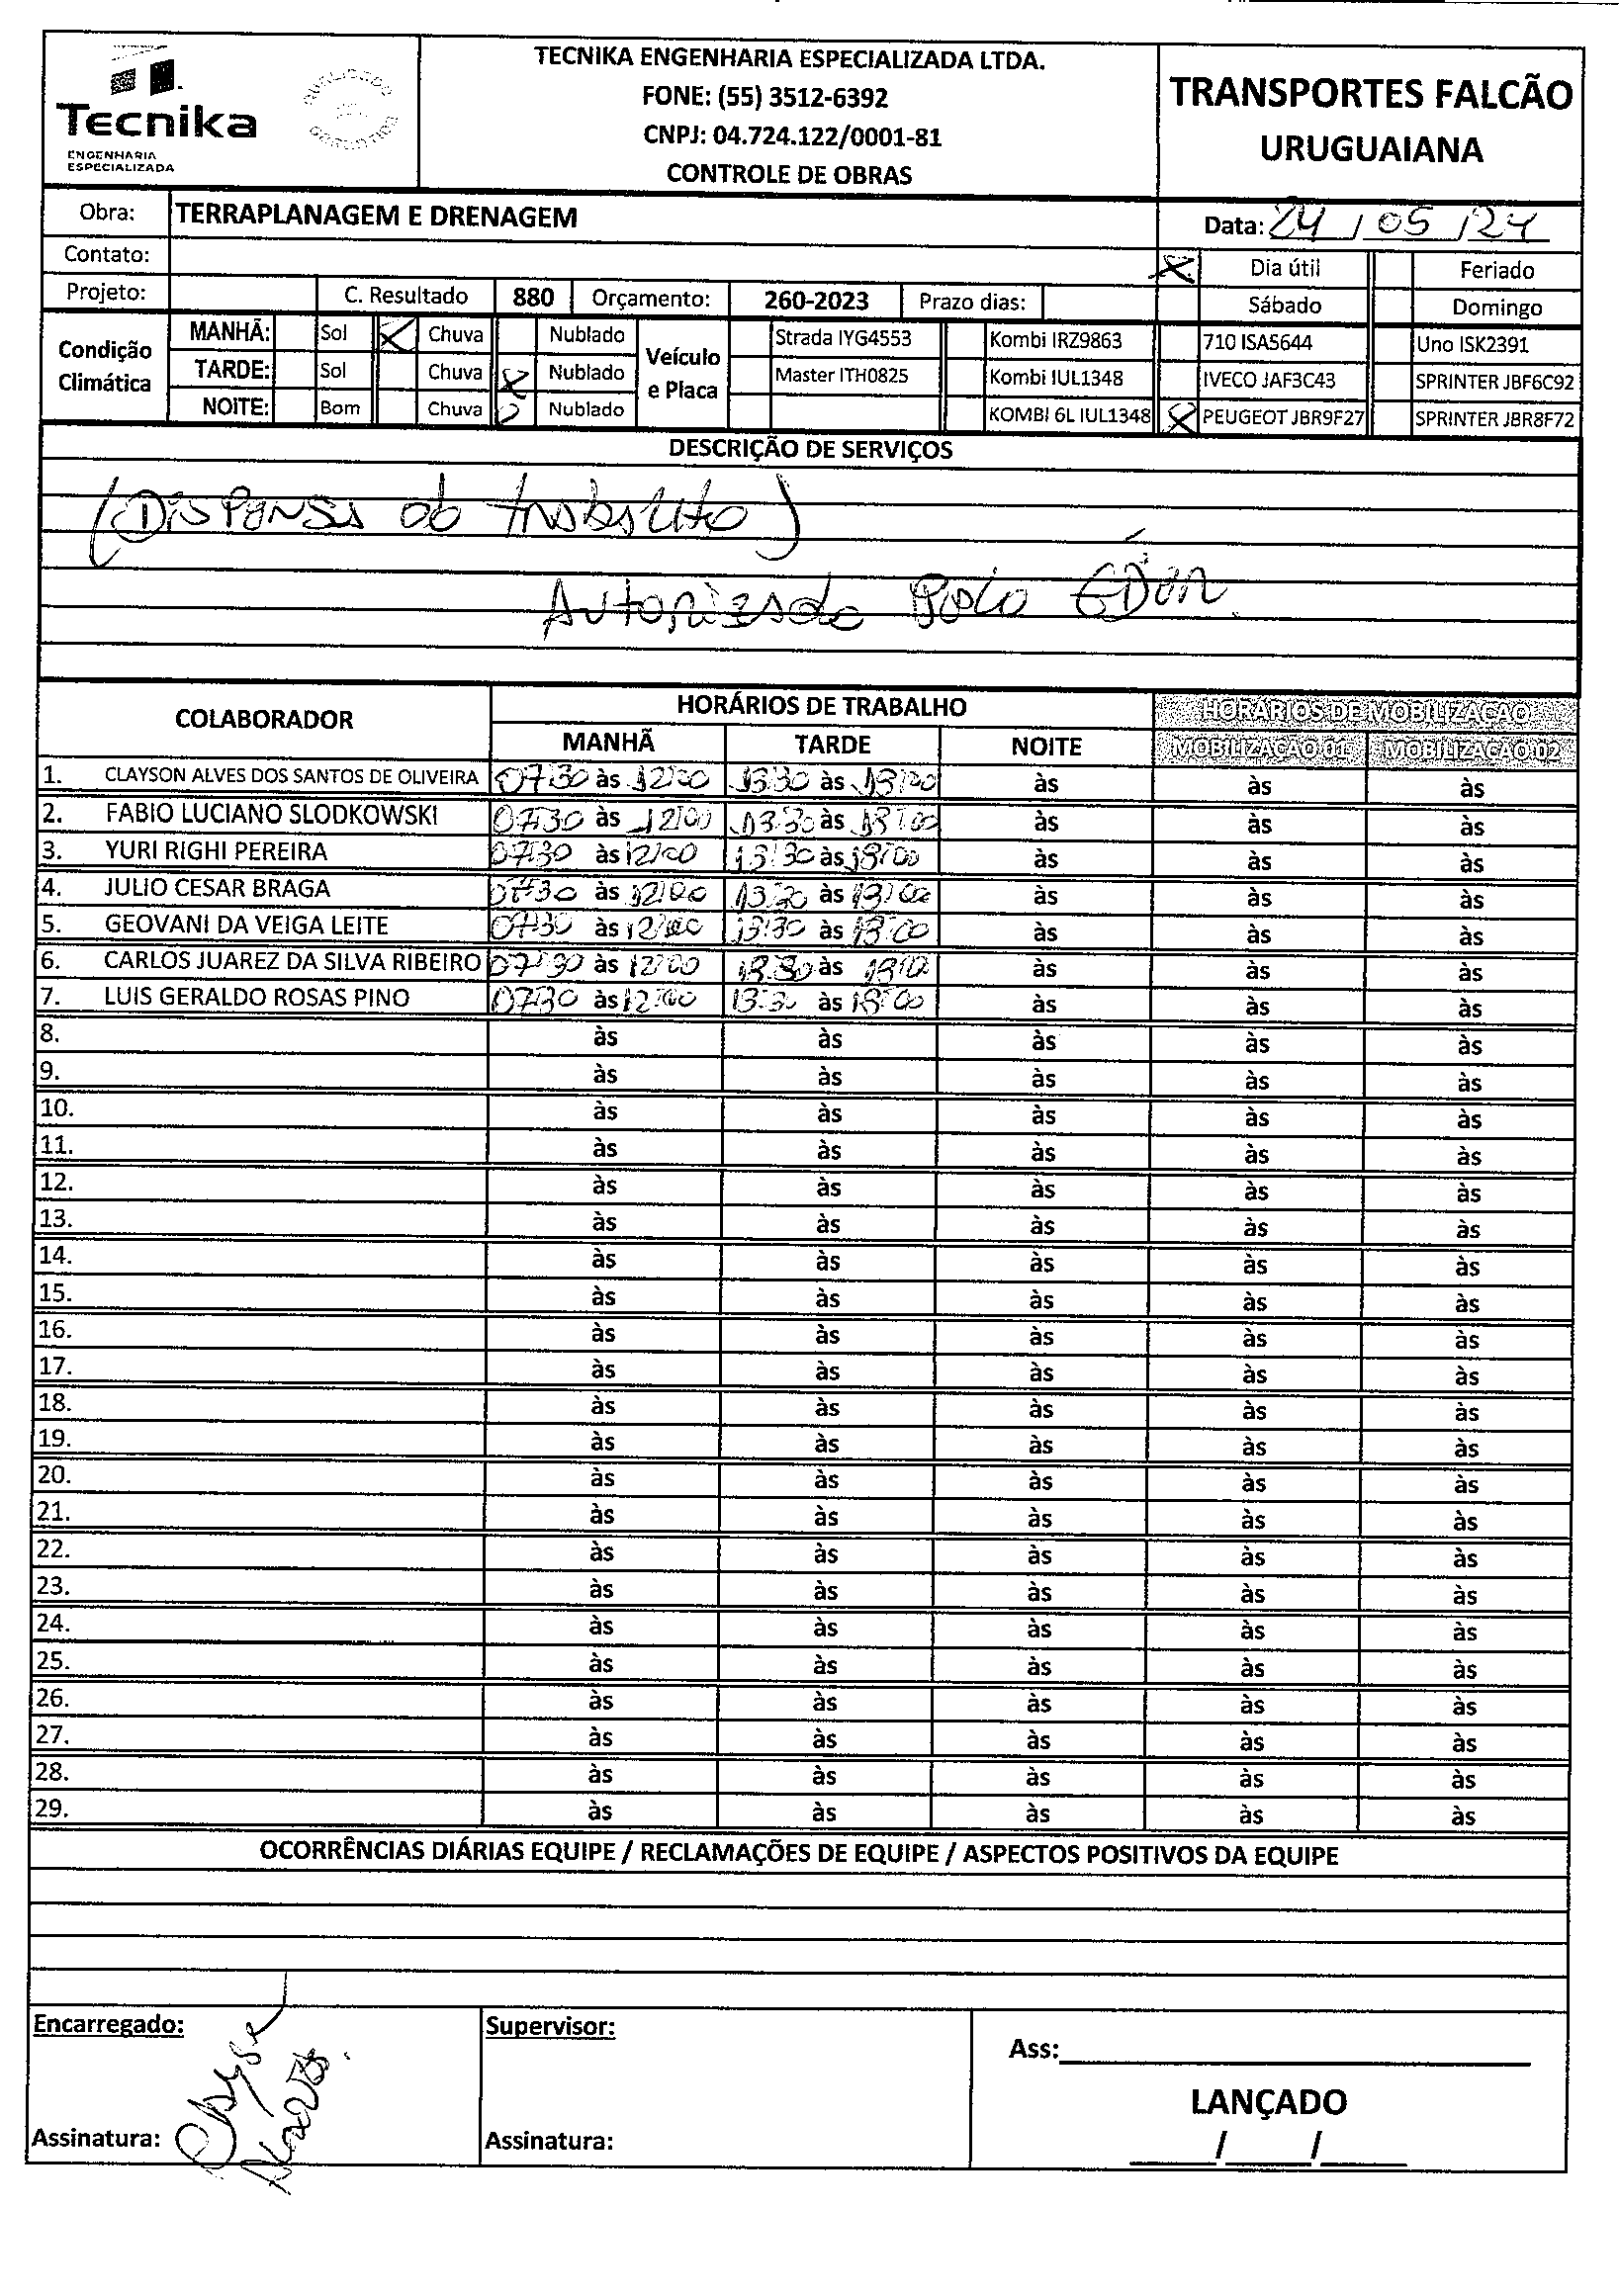 Tecnika
ENGENHARIA
ESPECIALIZADA
TECNIKA ENGENHARIA ESPECIALIZADA LTDA.
FONE: (55) 3512-6392
CNPJ: 04.724.122/0001-81
CONTROLE DE OBRAS
TRANSPORTES FALCÃO
URUGUAIANA
Obra: TERRAPLANAGEM E DRENAGEM
Data: 24/05/24
Contato:
X Dia útil Feriado
Projeto: C. Resultado 880 Orçamento: 260-2023 Prazo dias:
Sábado Domingo
Condição Climática
MANHÃ: Sol X Chuva Nublado
TARDE: Sol Chuva X Nublado
NOITE: Bom Chuva Nublado
Veículo e Placa
Strada IYG4553 Kombi IRZ9863 710 ISA5644 Uno ISK2391
Master ITH0825 Kombi IUL1348 IVECO JAF3C43 SPRINTER JBF6C92
KOMBI 6L IUL1348 X PEUGEOT JBR9F27 SPRINTER JBR8F72
DESCRIÇÃO DE SERVIÇOS
Autorizado Pelo
COLABORADOR HORÁRIOS DE TRABALHO HORÁRIOS DE MOBILIZAÇÃO
MANHÃ TARDE NOITE MOBILIZAÇÃO 01 MOBILIZAÇÃO 02
1. CLAYSON ALVES DOS SANTOS DE OLIVEIRA 07:30 às 12:00 13:30 às 18:00 às às às
2. FABIO LUCIANO SLODKOWSKI 07:30 às 12:00 13:30 às 18:00 às às às
3. YURI RIGHI PEREIRA 07:30 às 12:00 13:30 às 18:00 às às às
4. JULIO CESAR BRAGA 07:30 às 12:00 13:30 às 18:00 às às às
5. GEOVANI DA VEIGA LEITE 07:30 às 12:00 13:30 às 18:00 às às às
6. CARLOS JUAREZ DA SILVA RIBEIRO 07:30 às 12:00 13:30 às 18:00 às às às
7. LUIS GERALDO ROSAS PINO 07:30 às 12:00 13:30 às 18:00 às às às
8. às às às às às
9. às às às às às
10. às às às às às
11. às às às às às
12. às às às às às
13. às às às às às
14. às às às às às
15. às às às às às
16. às às às às às
17. às às às às às
18. às às às às às
19. às às às às às
20. às às às às às
21. às às às às às
22. às às às às às
23. às às às às às
24. às às às às às
25. às às às às às
26. às às às às às
27. às às às às às
28. às às às às às
29. às às às às às
OCORRÊNCIAS DIÁRIAS EQUIPE / RECLAMAÇÕES DE EQUIPE / ASPECTOS POSITIVOS DA EQUIPE
Encarregado: Supervisor:
Ass:
LANÇADO
Assinatura: Assinatura:
/ /